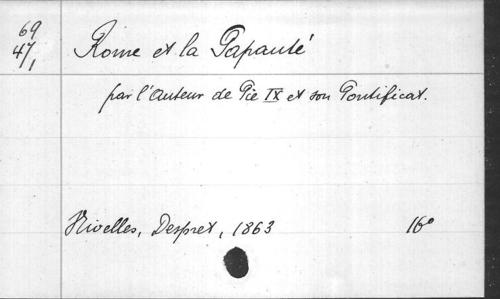 69
47,1
Rome et la Papauté
par l'Auteur de Pie IX et son Pontificat.
Nivelles, Despret, 1863 16°